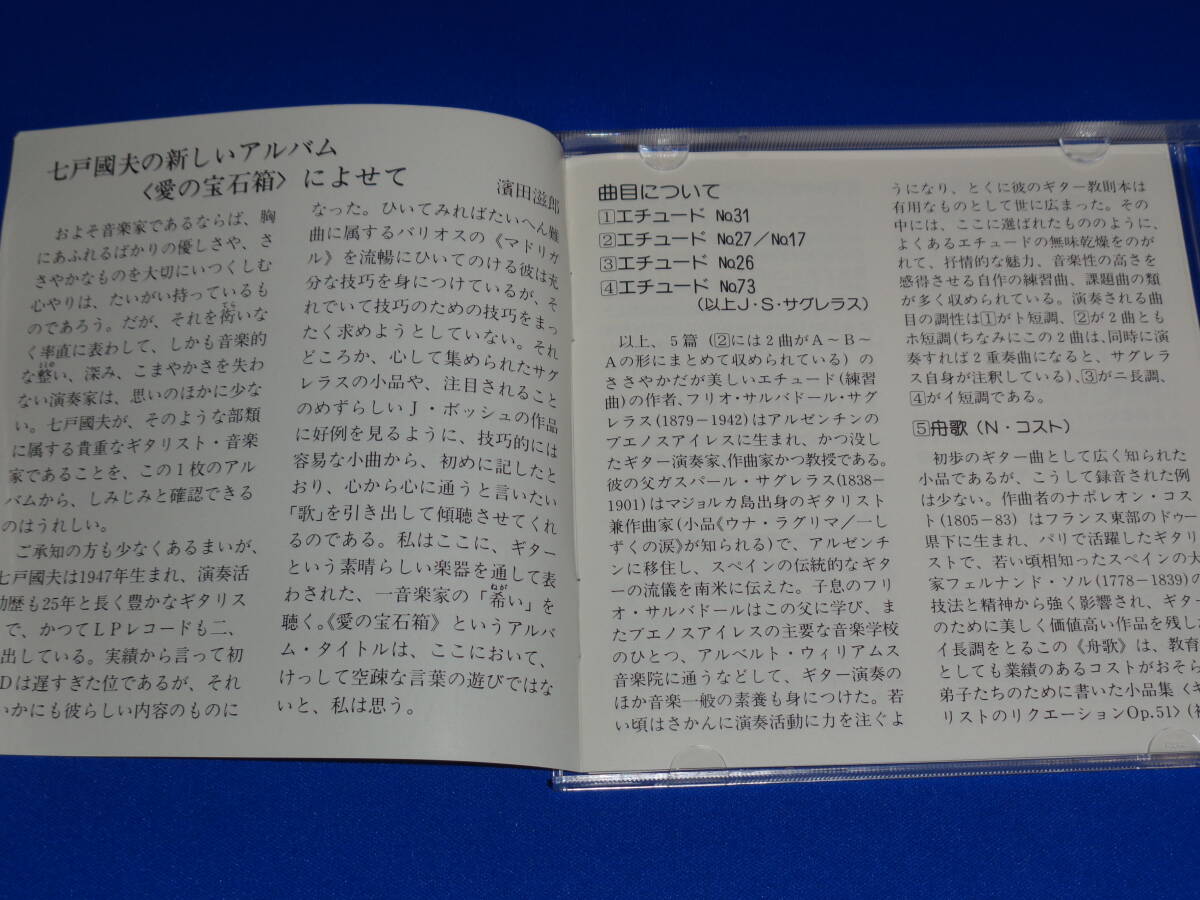 七戸國夫の新しいアルバム
〈愛の宝石箱〉によせて
濱田滋郎
およそ音楽家であるならば、胸
にあふれるばかりの優しさや、さ
さやかなものを大切にいつくしむ
心やりは、たいがい持っているも
のであろう。だが、それを衒いな
く率直に表わして、しかも音楽的
な整い、深み、こまやかさを失わ
ない演奏家は、思いのほかに少な
い。七戸國夫が、そのような部類
に属する貴重なギタリスト・音楽
家であることを、この1枚のアル
バムから、しみじみと確認できる
のはうれしい。
ご承知の方も少なくあるまいが、
七戸國夫は1947年生まれ、演奏活
動歴も25年と長く豊かなギタリス
で、かつてLPレコードも二、
出している。実績から言って初
Dは遅すぎた位であるが、それ
いかにも彼らしい内容のものに
なった。ひいてみればたいへん難
曲に属するバリオスの《マドリガ
ル》を流暢にひいてのける彼は充
分な技巧を身につけているが、そ
れでいて技巧のための技巧をまっ
たく求めようとしていない。それ
どころか、心して集められたサグ
レラスの小品や、注目されること
のめずらしいJ・ボッシュの作品
に好例を見るように、技巧的には
容易な小曲から、初めに記したと
おり、心から心に通うと言いたい
「歌」を引き出して傾聴させてくれ
るのである。私はここに、ギター
という素晴らしい楽器を通して表
わされた、一音楽家の「希い」を
聴く。《愛の宝石箱》というアルバ
ム・タイトルは、ここにおいて、
けっして空疎な言葉の遊びではな
いと、私は思う。
曲目について
1エチュード No.31
2エチュード No.27／No.17
3エチュード No.26
4エチュード No.73
(以上J・S・サグレラス)
以上、5篇(2には2曲がA～B～
Aの形にまとめて収められている)の
ささやかだが美しいエチュード(練習
曲)の作者、フリオ・サルバドール・サグ
レラス(1879－1942)はアルゼンチンの
ブエノスアイレスに生まれ、かつ没し
たギター演奏家、作曲家かつ教授である。
彼の父ガスパール・サグレラス(1838－
1901)はマジョルカ島出身のギタリスト
兼作曲家(小品《ウナ・ラグリマ／一し
ずくの涙》が知られる)で、アルゼンチ
ンに移住し、スペインの伝統的なギタ
ーの流儀を南米に伝えた。子息のフリ
オ・サルバドールはこの父に学び、ま
たブエノスアイレスの主要な音楽学校
のひとつ、アルベルト・ウィリアムス
音楽院に通うなどして、ギター演奏の
ほか音楽一般の素養も身につけた。若
い頃はさかんに演奏活動に力を注ぐよ
うになり、とくに彼のギター教則本は
有用なものとして世に広まった。その
中には、ここに選ばれたもののように、
よくあるエチュードの無味乾燥をのが
れて、抒情的な魅力、音楽性の高さを
感得させる自作の練習曲、課題曲の類
が多く収められている。演奏される曲
目の調性は1がト短調、2が2曲とも
ホ短調(ちなみにこの2曲は、同時に演
奏すれば2重奏曲になると、サグレラ
ス自身が注釈している)、3がニ長調、
4がイ短調である。
5舟歌(N・コスト)
初歩のギター曲として広く知られた
小品であるが、こうして録音された例
は少ない。作曲者のナポレオン・コス
ト(1805－83) はフランス東部のドゥー
県下に生まれ、パリで活躍したギタリ
ストで、若い頃相知ったスペインの大
家フェルナンド・ソル(1778－1839)の
技法と精神から強く影響され、ギター
のために美しく価値高い作品を残した
イ長調をとるこの《舟歌》は、教育
としても業績のあるコストがおそら
弟子たちのために書いた小品集〈ギ
リストのリクエーションOp.51〉(初